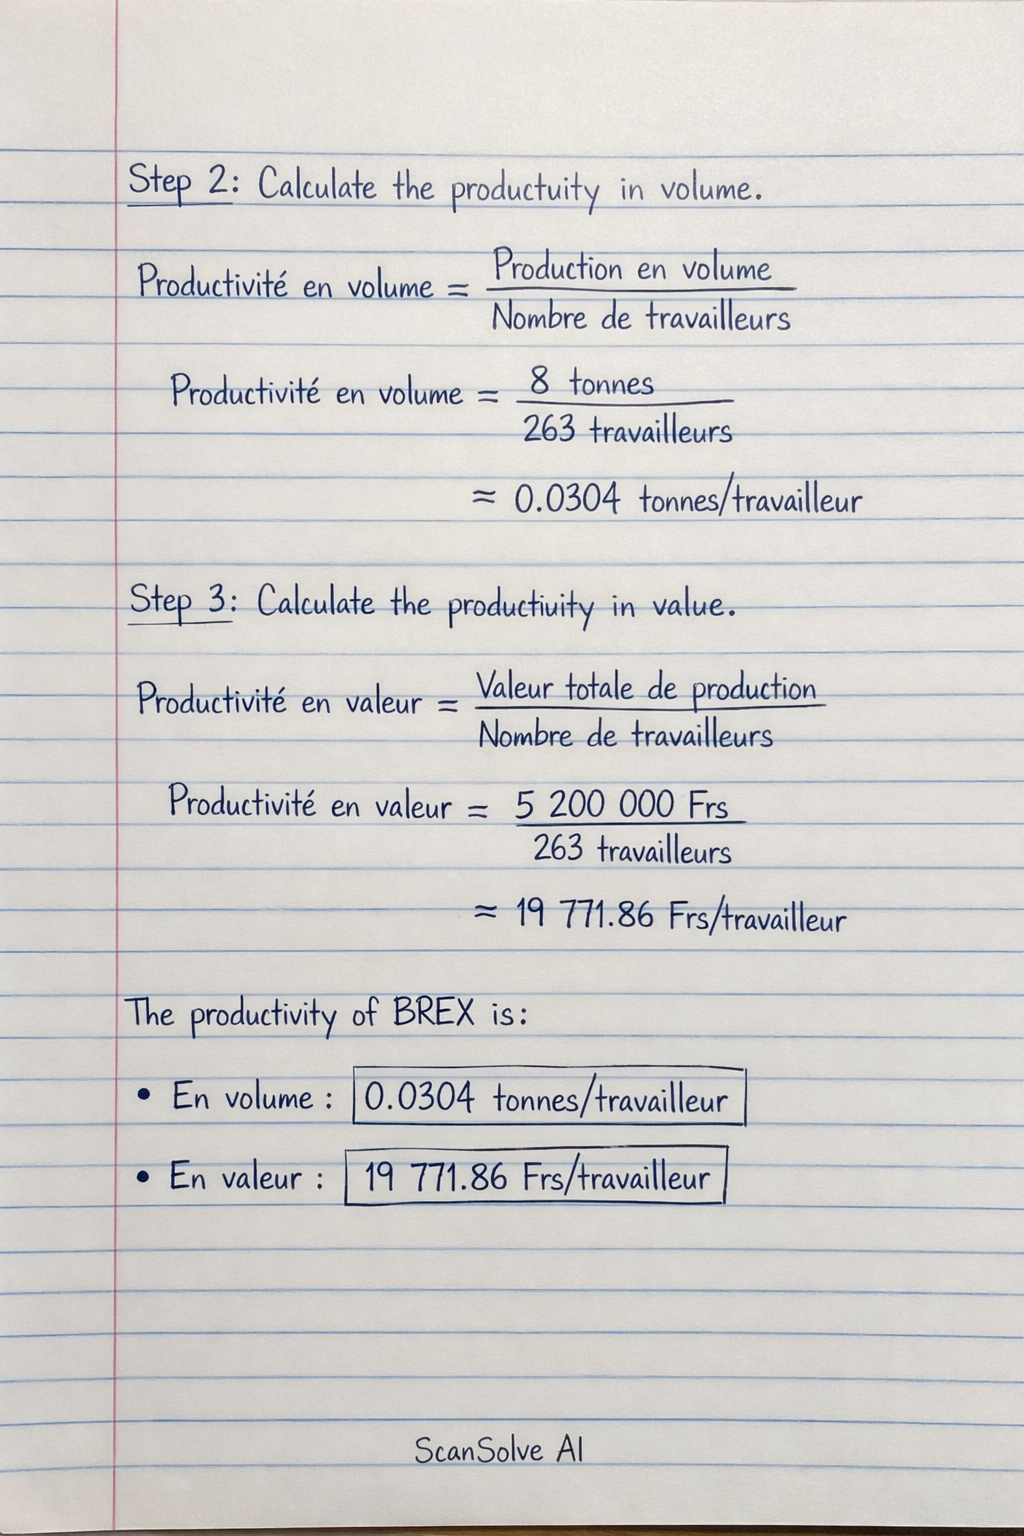 Step 2: Calculate the productuity in volume.
Productivité en volume = Production en volume / Nombre de travailleurs
Productivité en volume = 8 tonnes / 263 travailleurs
≈ 0.0304 tonnes/travailleur
Step 3: Calculate the productiuity in value.
Productivité en valeur = Valeur totale de production / Nombre de travailleurs
Productivité en valeur = 5 200 000 Frs / 263 travailleurs
≈ 19 771.86 Frs/travailleur
The productivity of BREX is:
• En volume : 0.0304 tonnes/travailleur
• En valeur : 19 771.86 Frs/travailleur
ScanSolve AI